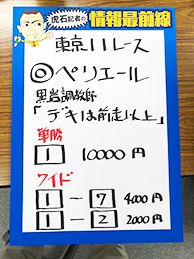 虎石記者の情報最前線
東京11レース
◎ペリエール
黒岩調教師
「デキは前走以上」
単勝
1 10000円
ワイド
1-7 4000円
1-2 2000円